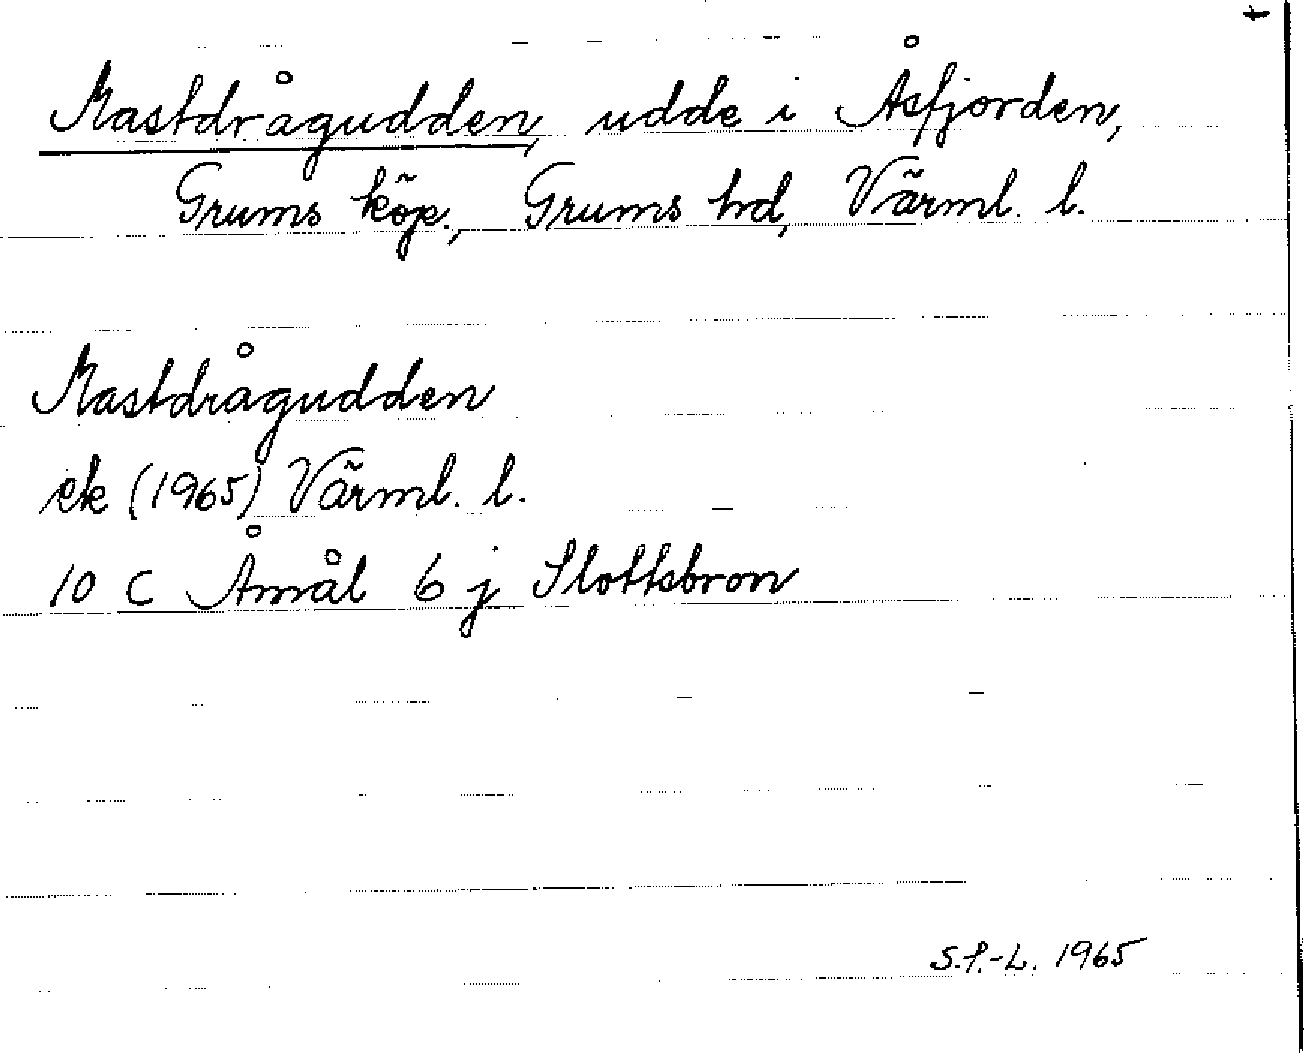 Mastdrågudden, udde i Åsfjorden,
Grums köp., Grums hd, Värml. l.
Mastdrågudden
ek (1965) Värml. l.
10 C Åmål 6 j Slottsbron
S.P.-L. 1965